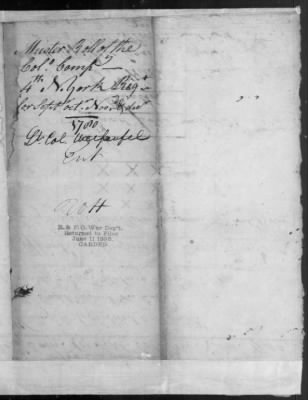 Muster Roll of the
Col.º Comp.y
4th N. York Reg.t
for Sept. oct. Nov. & dec
1780
Lt. Col.
Ent
R. & P. O. War Dep't.
Returned to Files
June 11
CARDED